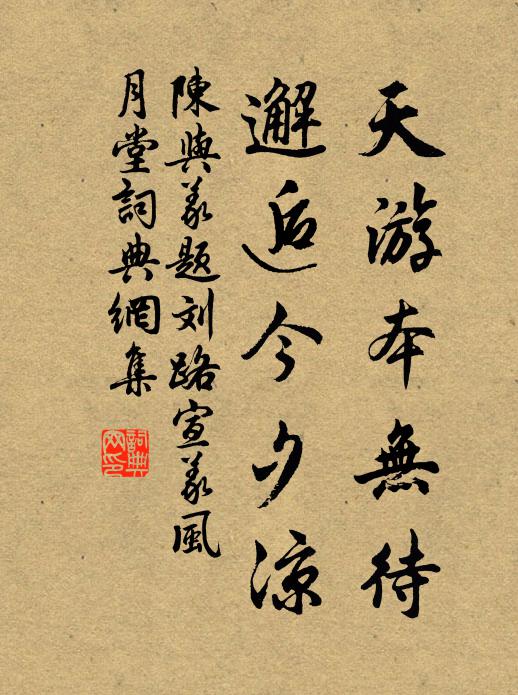 天游本無待
邂逅今夕涼
陳與義題刘路宣義風
月堂詞典網集
詞典网印